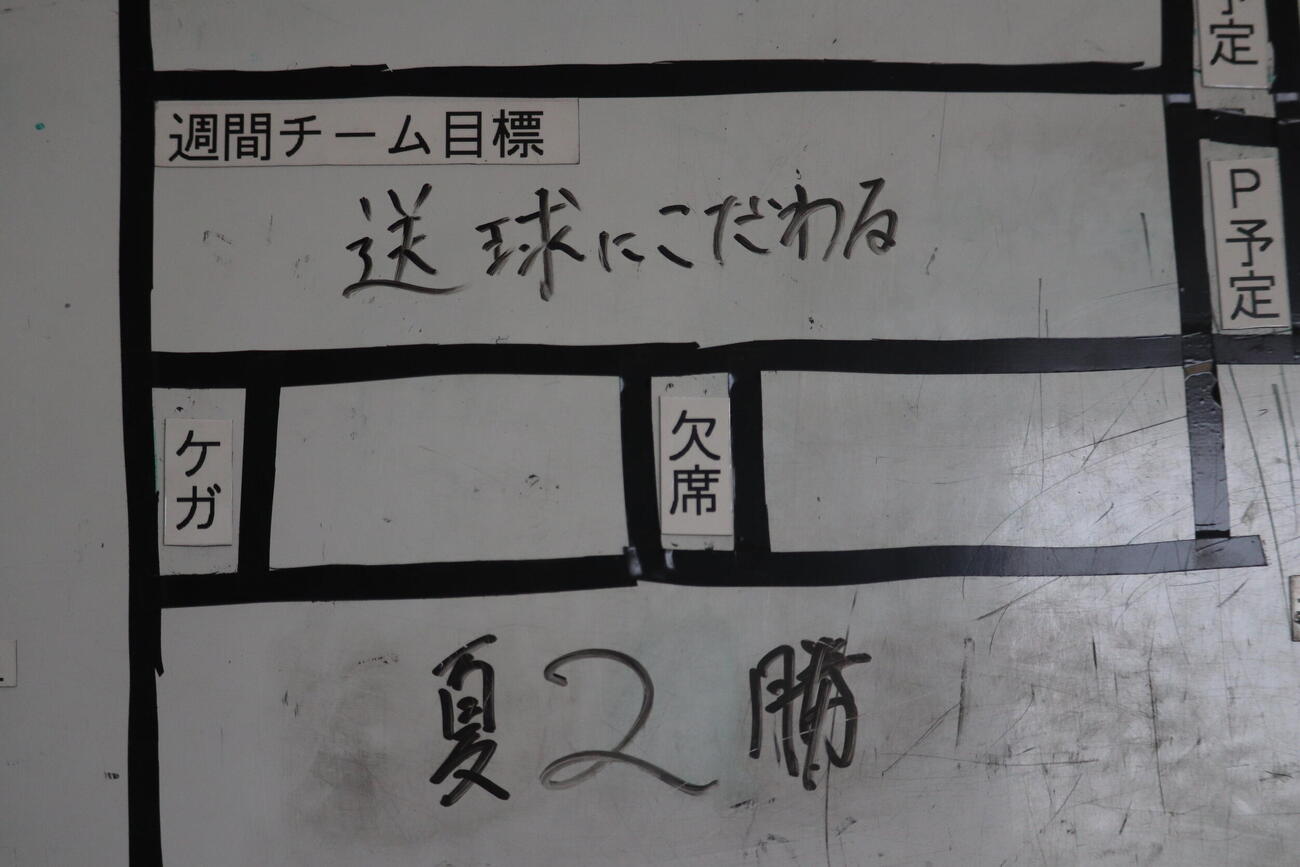 予定
週間チーム目標
送球にこだわる
P予定
ケガ
欠席
夏2勝